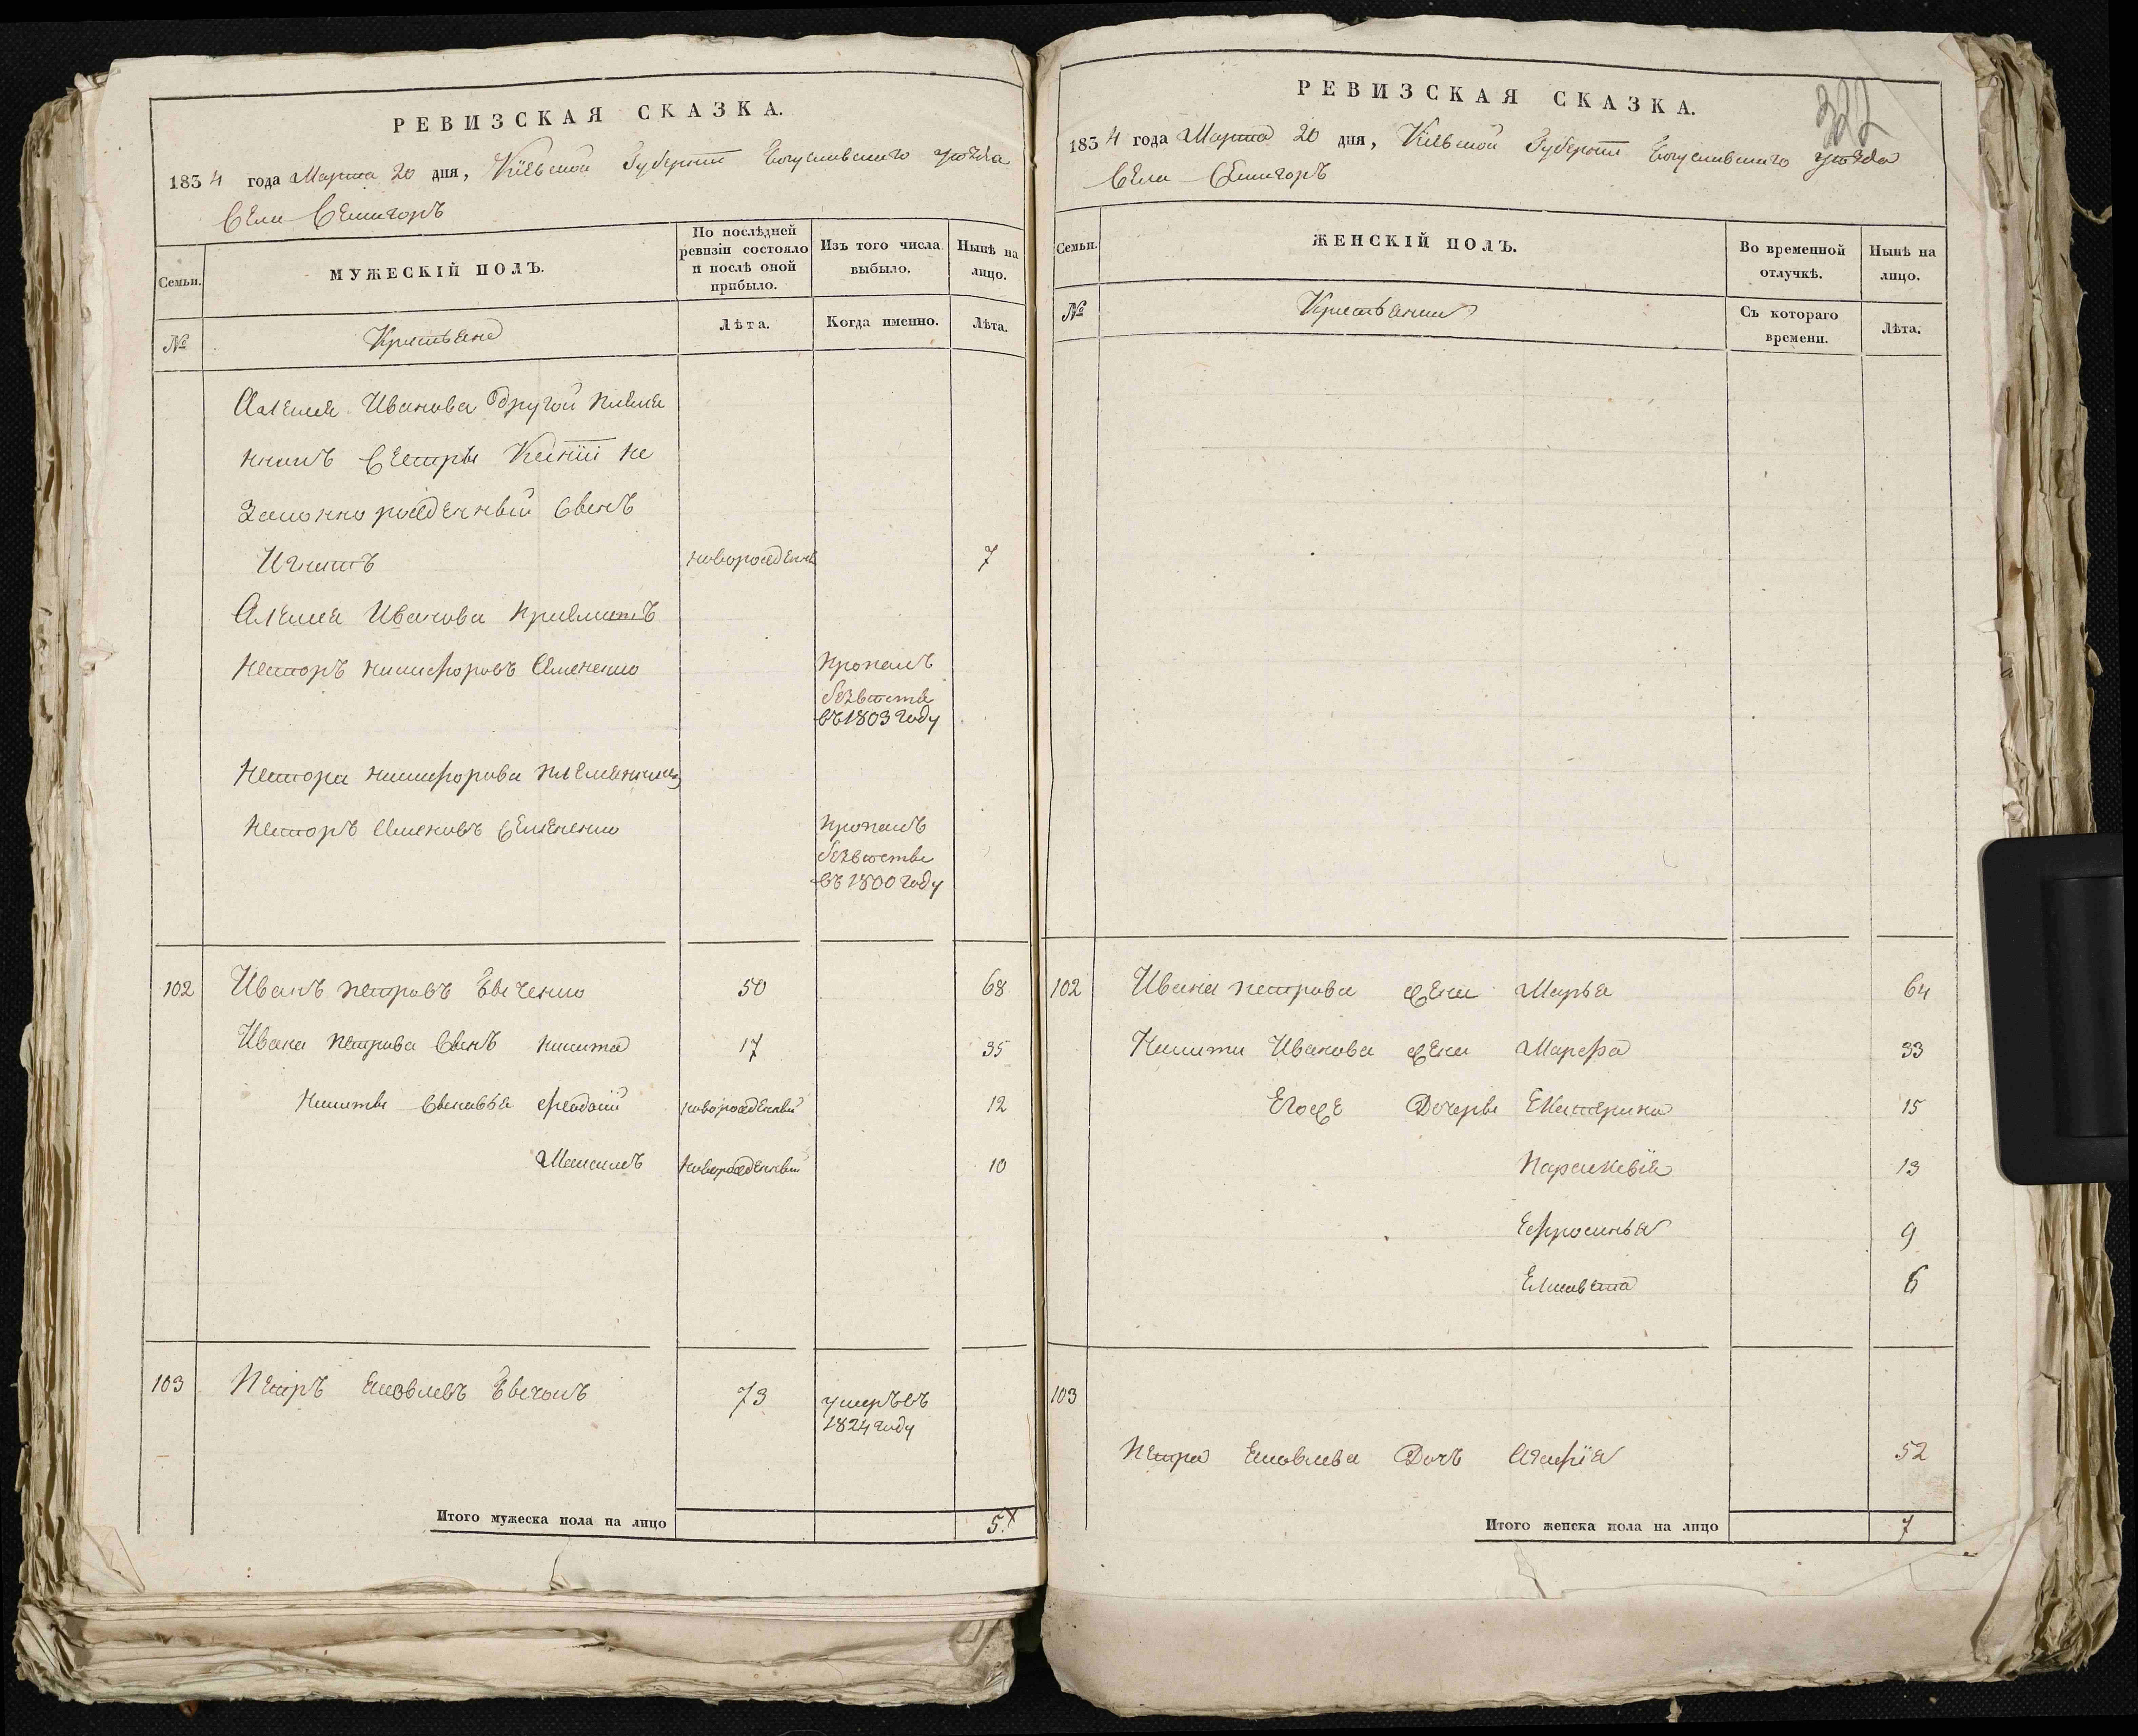 РЕВИЗСКАЯ СКАЗКА.
1834 года Марта 20 дня, Кіевской Губерніи Богуславскаго уѣзда
Села Семигоръ
Семьи.
МУЖЕСКІЙ ПОЛЪ.
По послѣдней ревизіи состояло и послѣ оной прибыло.
Изъ того числа выбыло.
Нынѣ на лицо.
№
Крестьяне
Лѣта.
Когда именно.
Лѣта.
Алексея Иванова другой племя
нникъ Сестры Ксеніи не
законно рожденный Сынъ
Игнатъ новорожденны 7
Алексея Иванова
Несторъ Никифоровъ Семененко
пропалъ
безвести
въ 1803 году
Нестора Никифорова племянникъ
Несторъ Семеновъ Семененко
пропалъ
безвести
въ 1800 году
102 Иванъ Петровъ Евченко 50 68
Ивана Петрова Сынъ Никита 17 35
Никиты Сыновья Феодосій новорожденный 12
Максимъ новорожденный 10
103 Петръ Яковлевъ 73 умеръ въ
1824 году
Итого мужеска пола на лицо 5.
322
РЕВИЗСКАЯ СКАЗКА.
1834 года Марта 20 дня, Кіевской Губерніи Богуславскаго уѣзда
Села Семигоръ
Семьи.
ЖЕНСКІЙ ПОЛЪ.
Во временной отлучкѣ.
Нынѣ на лицо.
№
Крестьянки
Съ котораго времени.
Лѣта.
102 Ивана Петрова жена Марья 64
Никиты Иванова жена Марфа 33
Егоже Дочери Екатерина 15
Параскевія 13
Ефросинья 9
Елисавета 6
103
Петра Яковлева Дочь Агафія 52
Итого женска пола на лицо 7